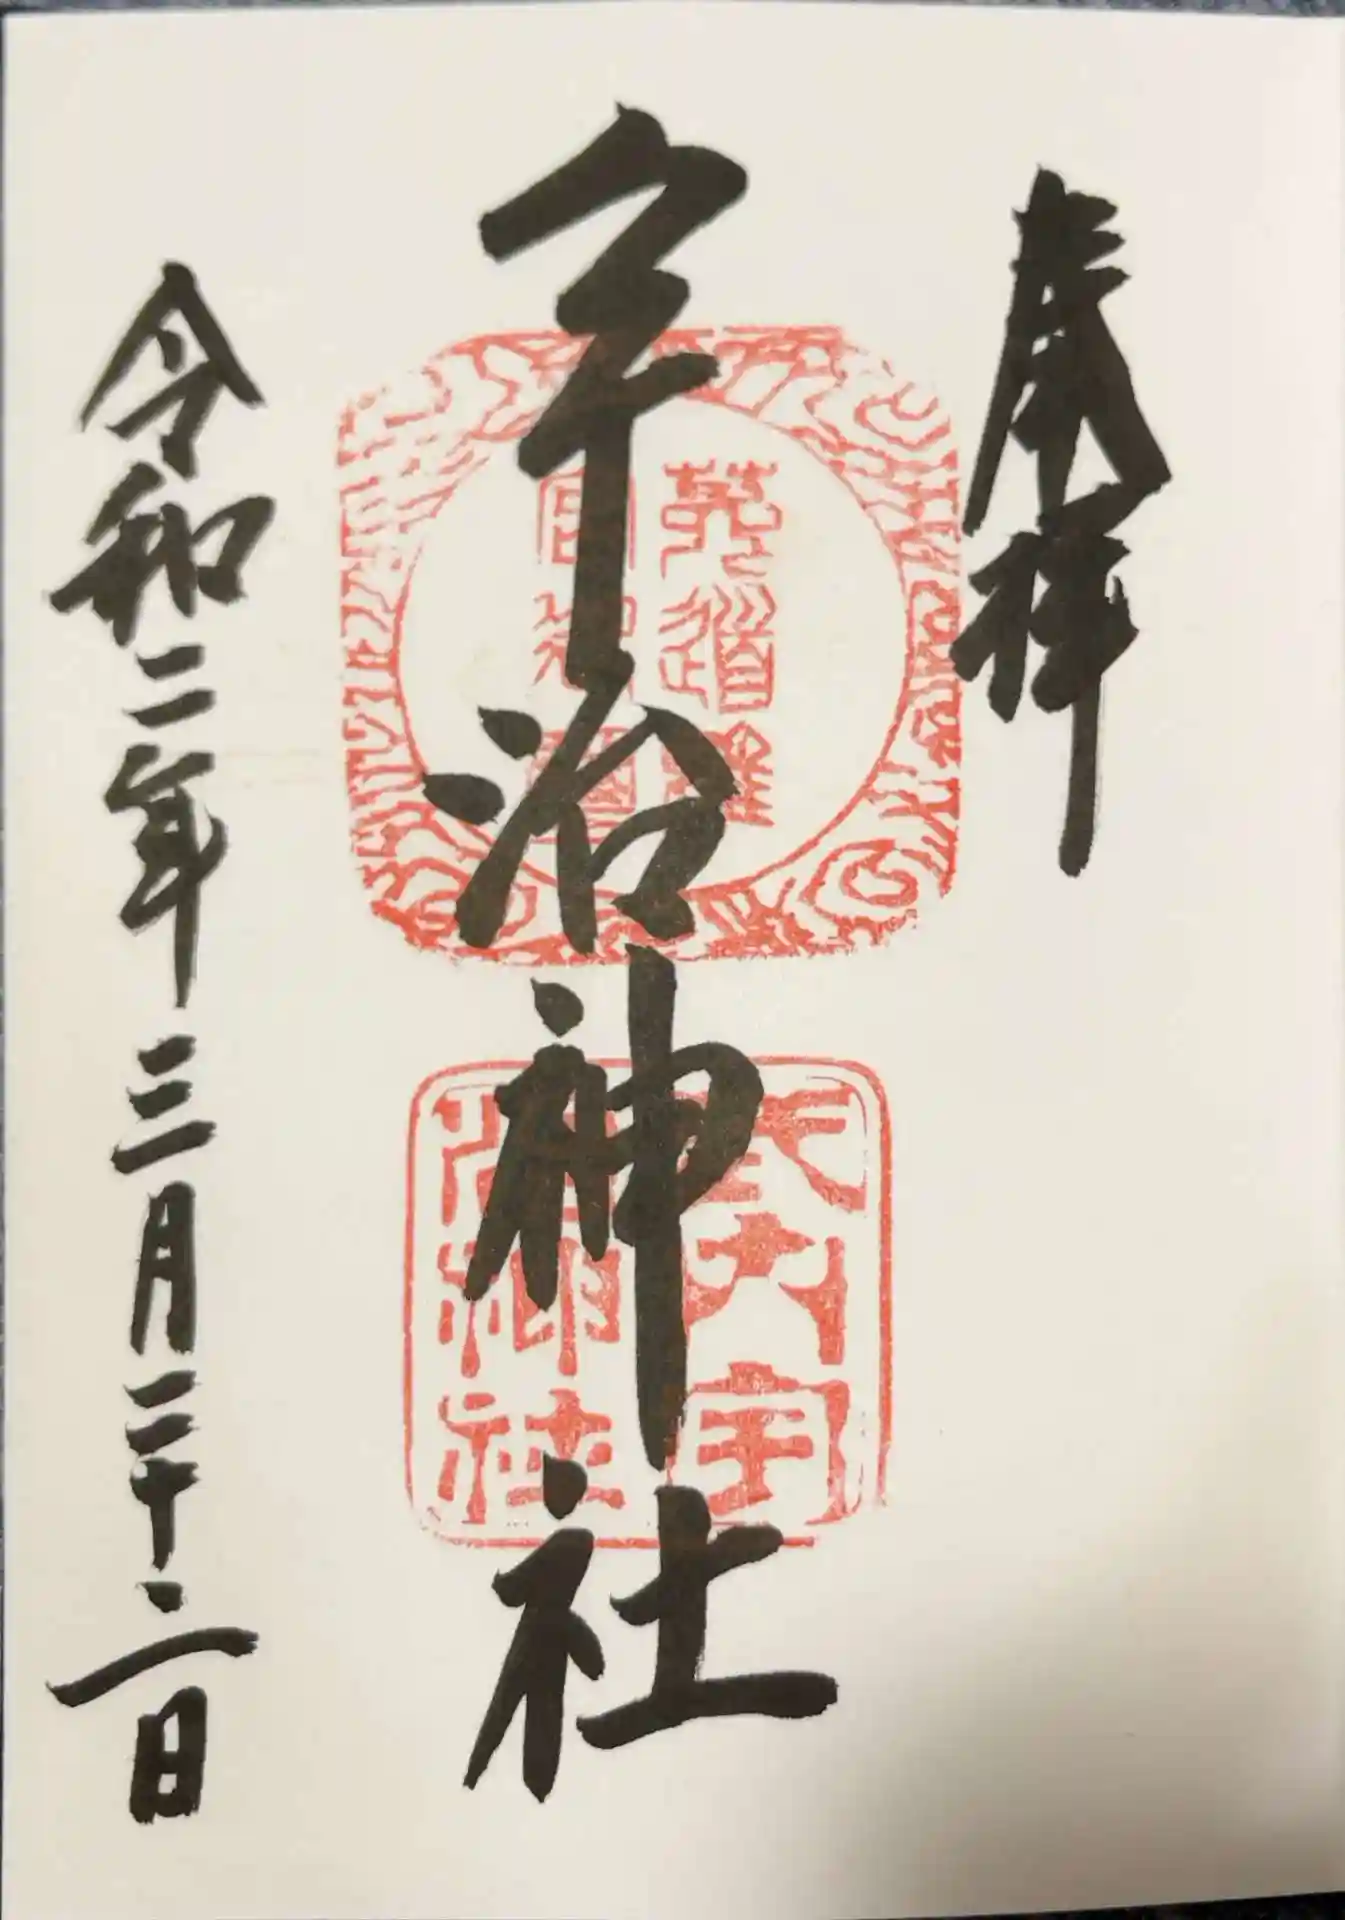 奉拝
宇治神社
令和二年三月二十二日